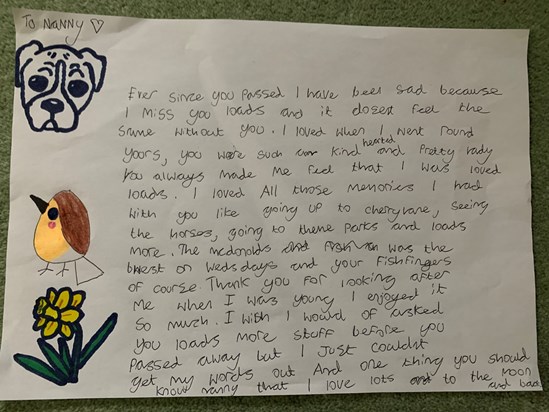 To NANNY ♡
Ever since you passed I have beel sad because
I miss you loads and it dosent feel the
same without you. I loved when I went round
yours, you were such a kind hearted and Pretty lady
You always made me feel that I was loved
loads. I loved All those memories I had
with you like going up to cherrylane, seeing
the horses, going to theme Parks and loads
more. The mcdonalds was the
best on Wedsdays and your FishFingers
of course. Thank you for looking after
Me when I was young I enjoyed it
So much. I wish I would of asked
you loads more stuff before you
Passed away but I Just couldnt
get my words out And one thing you should
know nanny that I love lots to the moon
and back